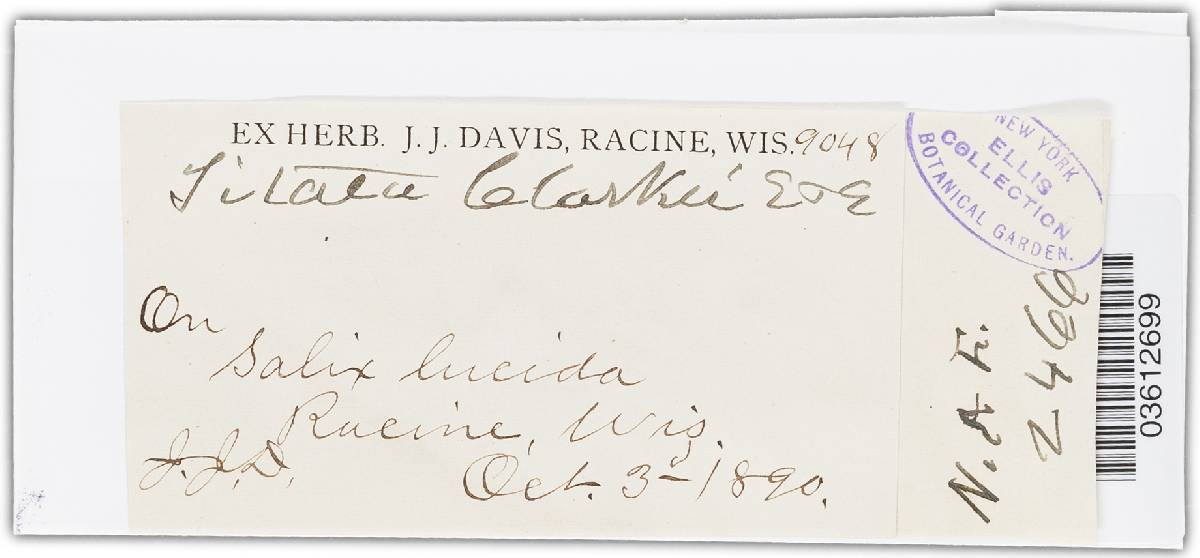 EX HERB. J. J. DAVIS, RACINE, WIS. 9048
Titaea Clarkei E & E
On
Salix lucida
Racine, Wis.
J.J.D. Oct. 3 - 1890.
NEW YORK
BOTANICAL GARDEN.
ELLIS
COLLECTION
N. A. F.
2466
03612699